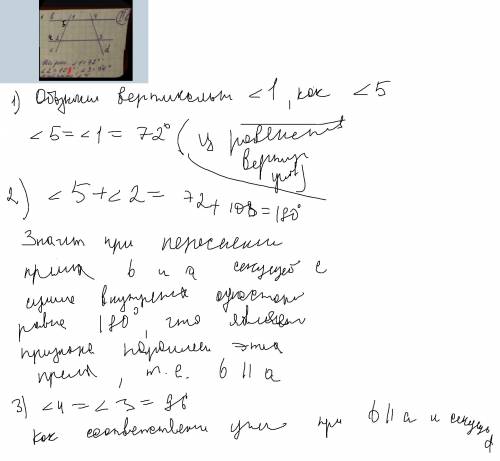 1) Обозначим вертикальный ∠1, как ∠5
∠5 = ∠1 = 72° (из равенства
вертик
углов)
2) ∠5 + ∠2 = 72 + 108 = 180°
Значит при пересечении
прямых b и a секущей c
сумма внутренних односторон
равна 180°, что является
признаком параллел этих
прямых, т.е. b || a
3) ∠4 = ∠3 = 96
как соответствен углы при b || a и секущ
d